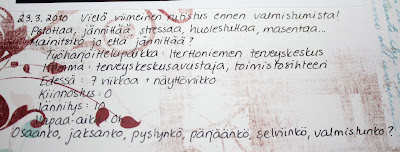 23.3.2010 Vielä viimeinen rutistus ennen valmistumista!
Pelottaa, jännittää, stressaa, huolestuttaa, masentaa...
Mainitsinko jo että jännittää?
Työharjoittelupaikka: Itertioniemen terveyskeskus
terveyskeskusavustaja, toimistosihteeri
Edessä: 7 viikkoa + näyttöviikko
Kiinnostus: 0
Jännitys: 10
Vapaa-aika: 0
Osaanko, jaksanko, pystynkö, pärjäänkö, selviinkö, valmistunko?